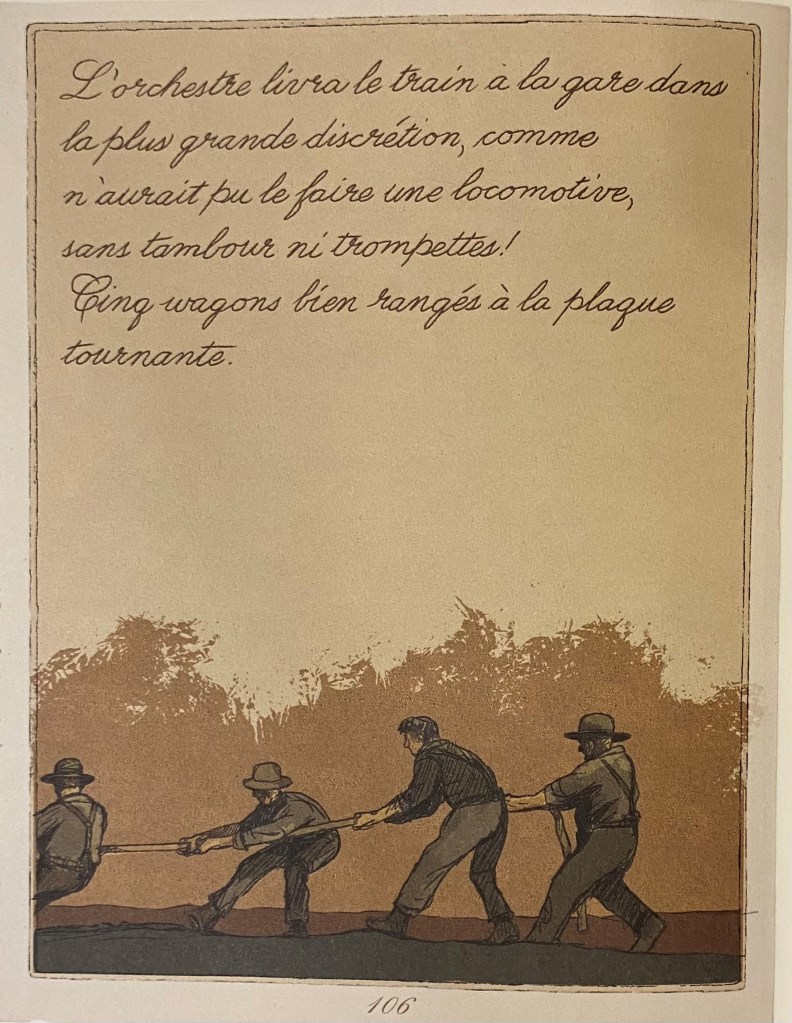 L'orchestre livra le train à la gare dans
la plus grande discrétion, comme
n'aurait pu le faire une locomotive,
sans tambour ni trompettes!
Cinq wagons bien rangés à la plaque
tournante.
106